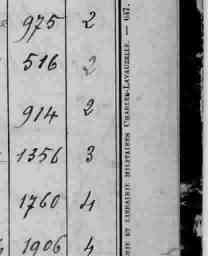 975 2
516 2
914 2
1356 3
1760 4
1906 4
RIE ET LIBRAIRIE MILITAIRES CHARLES-LAVAUZELLE. — 647.